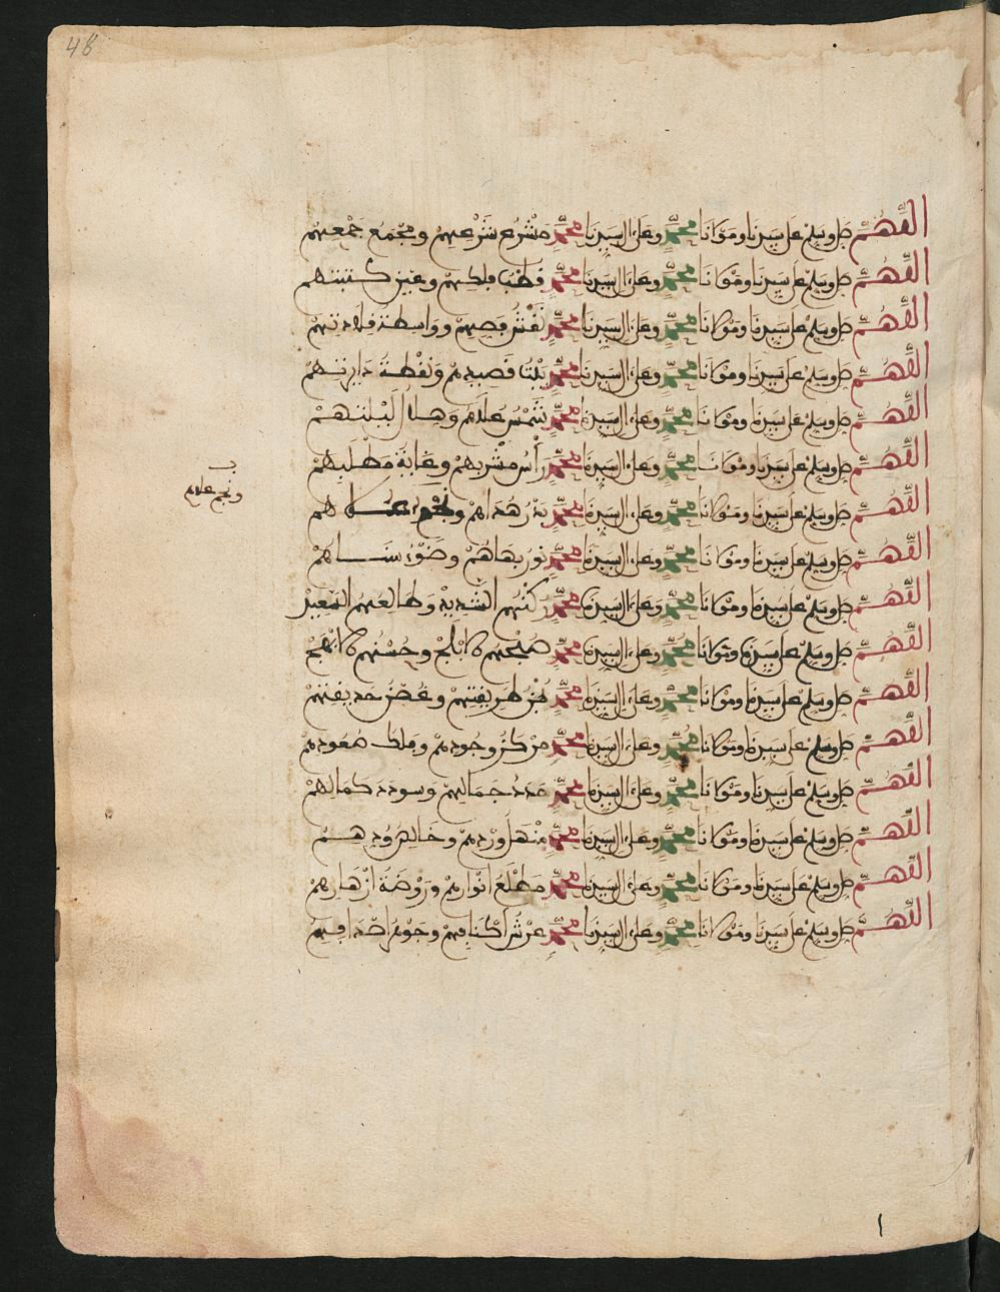 48
اللهم صل وسلم على سيدنا ومولانا محمد وعلى ءال سيدنا محمد مشرع شرعهم ومجمع جمعهم
اللهم صل وسلم على سيدنا ومولانا محمد وعلى ءال سيدنا محمد قطب فلكهم وعين كتبتهم
اللهم صل وسلم على سيدنا ومولانا محمد وعلى ءال سيدنا محمد نقش فصهم وواسطة قلادتهم
اللهم صل وسلم على سيدنا ومولانا محمد وعلى ءال سيدنا محمد بيت قصيدهم ونقطة دايرتهم
اللهم صل وسلم على سيدنا ومولانا محمد وعلى ءال سيدنا محمد شمس علاهم وهلال ليلتهم
اللهم صل وسلم على سيدنا ومولانا محمد وعلى ءال سيدنا محمد رأس مشربهم وغاية مطلبهم
اللهم صل وسلم على سيدنا ومولانا محمد وعلى ءال سيدنا محمد بدر هداهم
ونجم علام
اللهم صل وسلم على سيدنا ومولانا محمد وعلى ءال سيدنا محمد نور بهاهم وضوء سناهم
اللهم صل وسلم على سيدنا ومولانا محمد وعلى ءال سيدنا محمد ركنهم الشديد وطالعهم
اللهم صل وسلم على سيدنا ومولانا محمد وعلى ءال سيدنا محمد صبحهم الابلج وحسنهم الابهج
اللهم صل وسلم على سيدنا ومولانا محمد وعلى ءال سيدنا محمد طريقتهم وغصن حديقتهم
اللهم صل وسلم على سيدنا ومولانا محمد وعلى ءال سيدنا محمد مركز وجودهم وملك صعودهم
اللهم صل وسلم على سيدنا ومولانا محمد وعلى ءال سيدنا محمد مدد جمالهم وسودد كمالهم
اللهم صل وسلم على سيدنا ومولانا محمد وعلى ءال سيدنا محمد منهل وردهم وخالص ودهم
اللهم صل وسلم على سيدنا ومولانا محمد وعلى ءال سيدنا محمد مطلع انوارهم وروضة ازهارهم
اللهم صل وسلم على سيدنا ومولانا محمد وعلى ءال سيدنا محمد عرش اكنافهم وجوهر اصدافهم